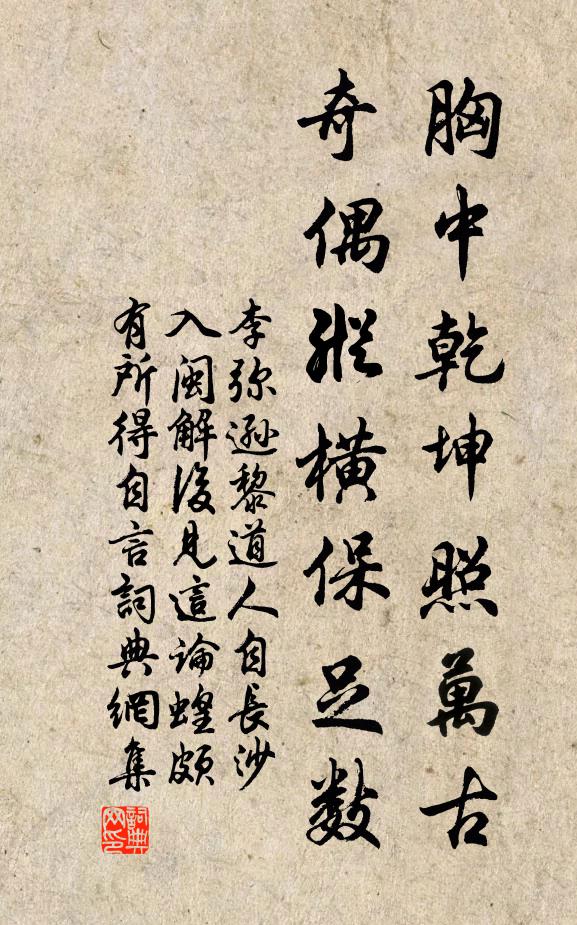 胸中乾坤照萬古
奇偶縱橫保足數
李弥遜黎道人自長沙
入閩解後見這論蝗頗
有所得自言詞典網集
詞典网印